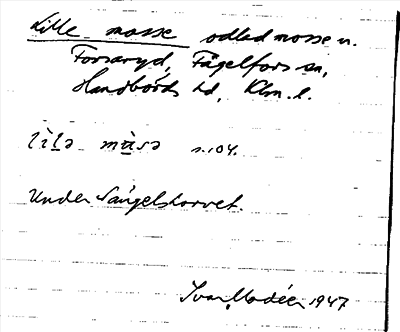 Lille mosse odlad mosse n.
Forsaryd, Fågelfors sn,
Handbörds hd, Klm. l.
lìlə màsə s. 104.
Under
Ivar Modéer 1947